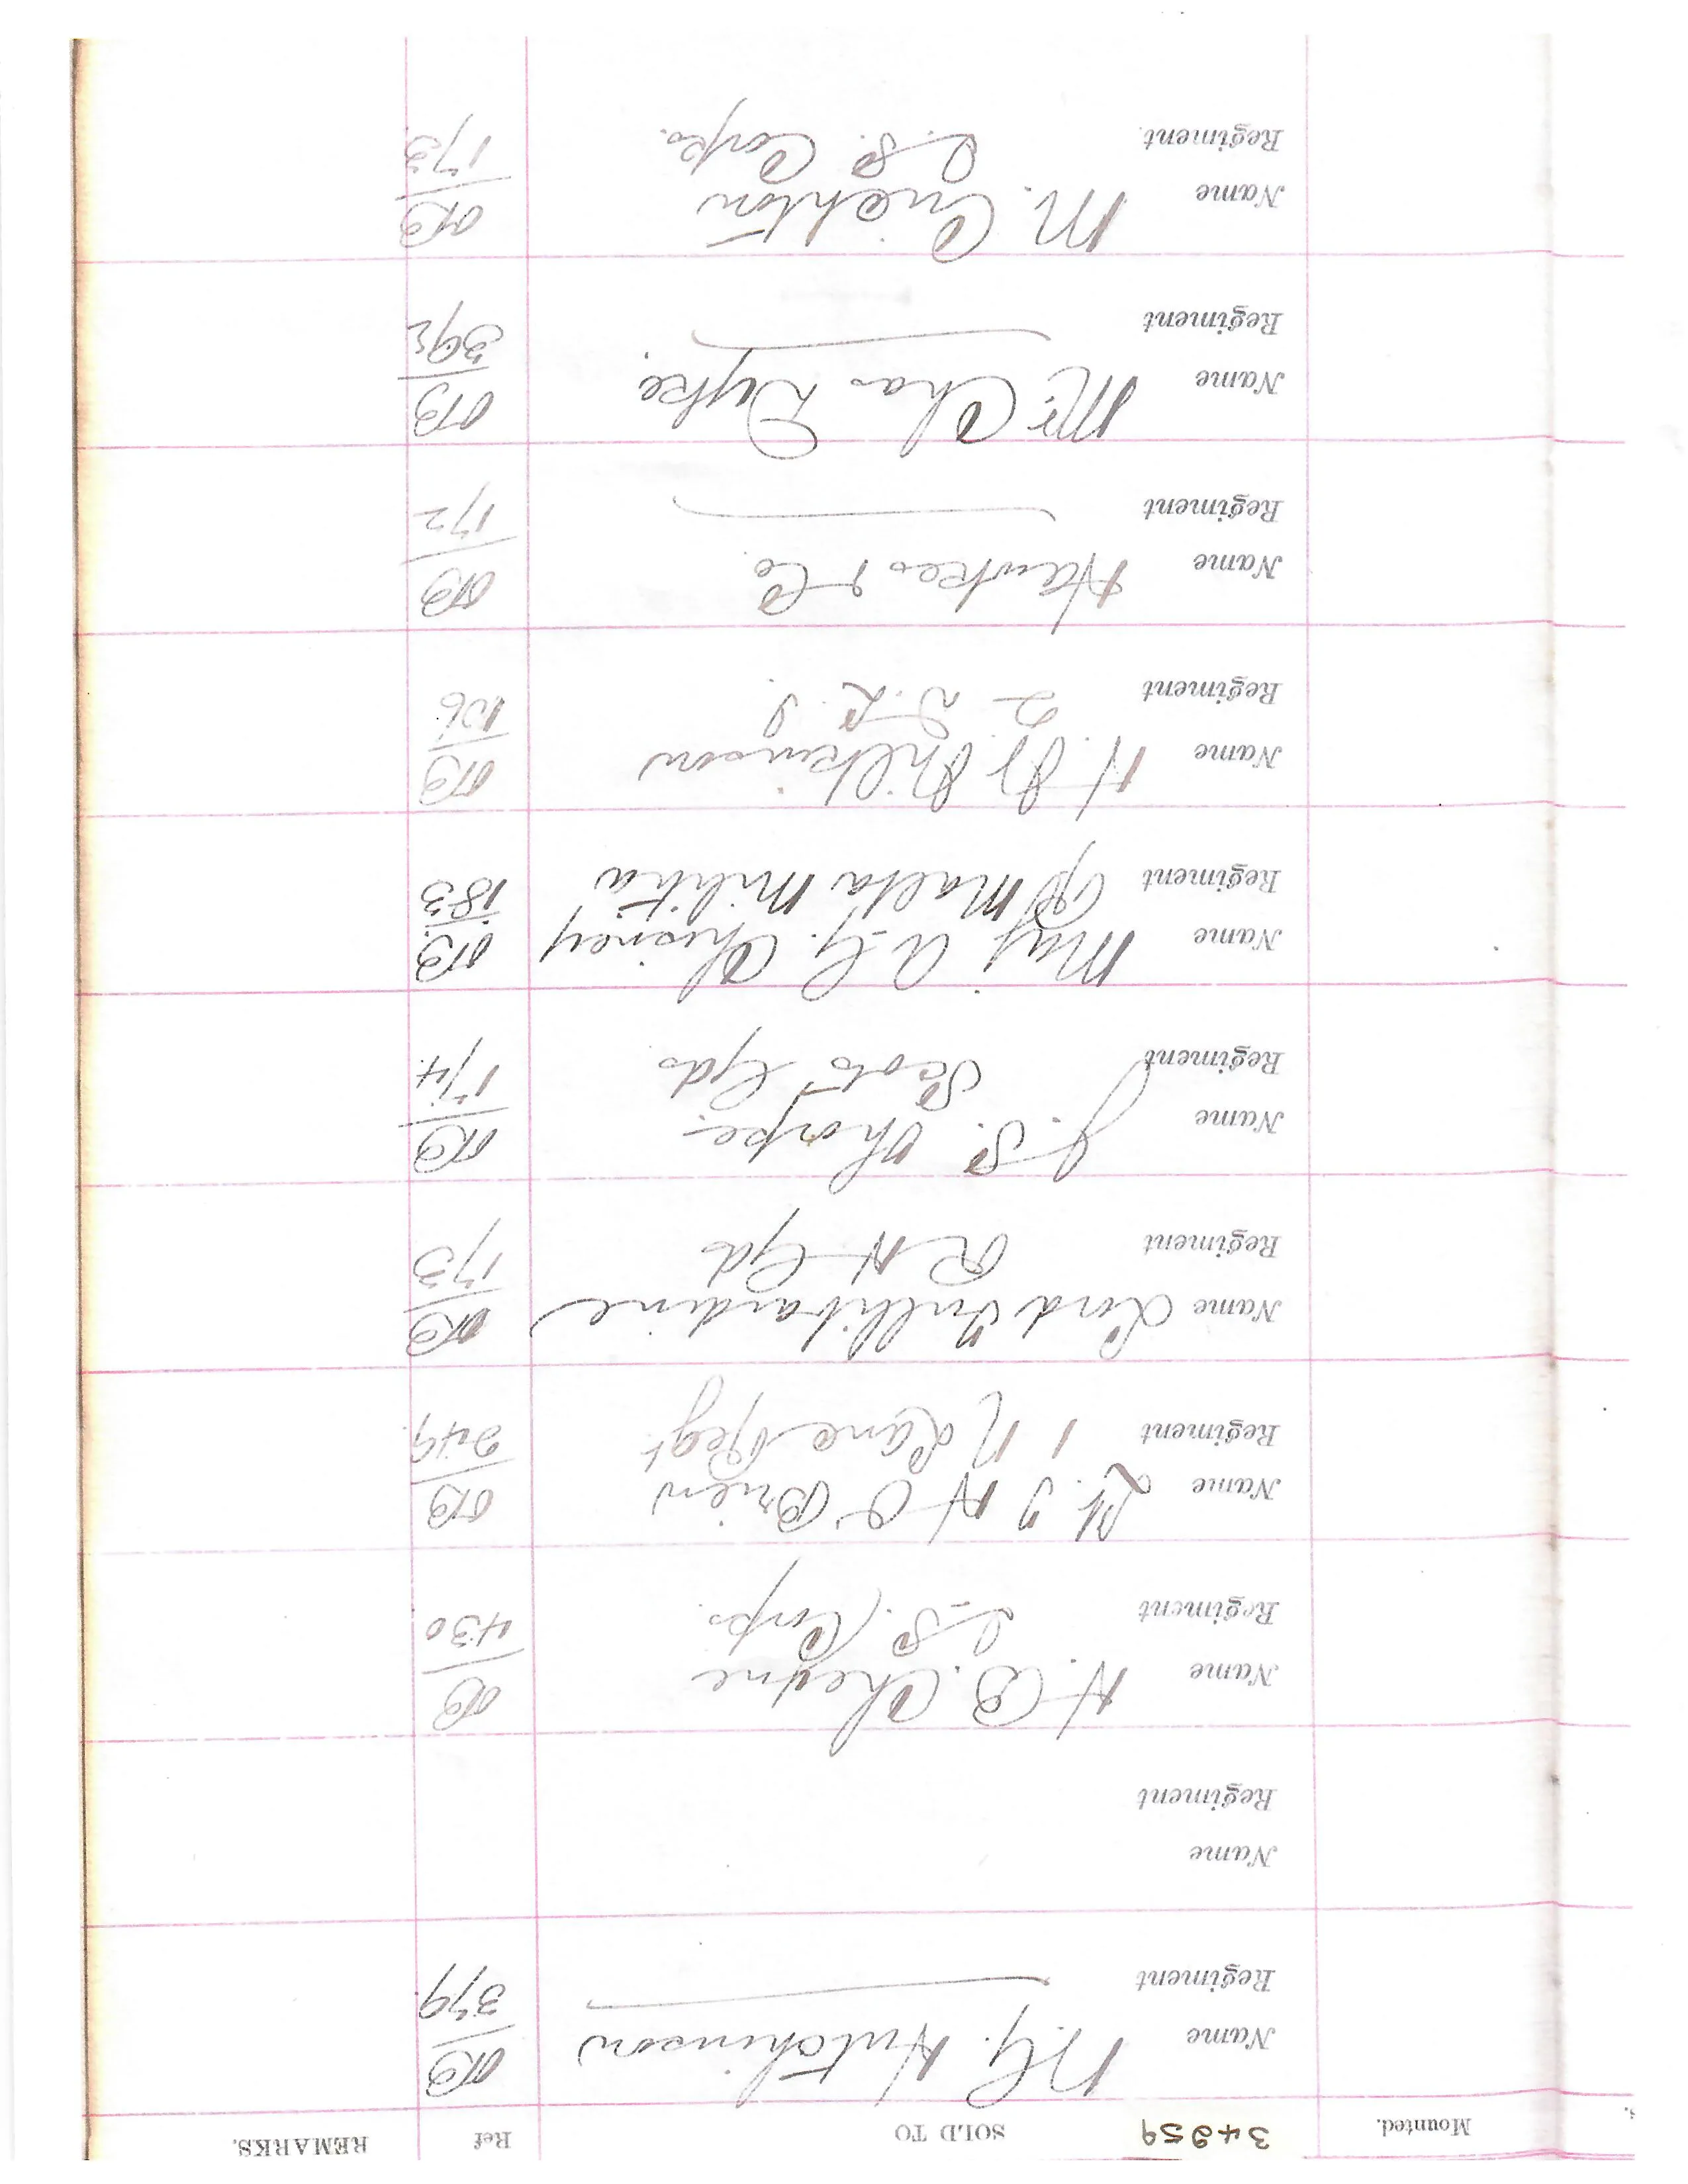 Mounted. 34859 SOLD TO Ref REMARKS.
Name N.G. Hutchinson OB
Regiment 379
Name
Regiment
Name H. B. Cheyne OB
Regiment I. S. Corps. 430
Name Lt. J H O'Brien OB
Regiment 1 N Lanc Regt 249
Name Lord Tullibardine OB
Regiment R H Gds 173
Name J. S. Thorpe OB
Regiment Scots Gds 174
Name Maj. A. G. Chesney OB
Regiment Rl Malta Militia 183
Name H. St. Wilkinson OB
Regiment 2 D. L. I. 156
Name Hawkes & Co OB
Regiment 172
Name Mr. Chas Dyke OB
Regiment 392
Name M. Crichton OB
Regiment I. S. Corps. 173